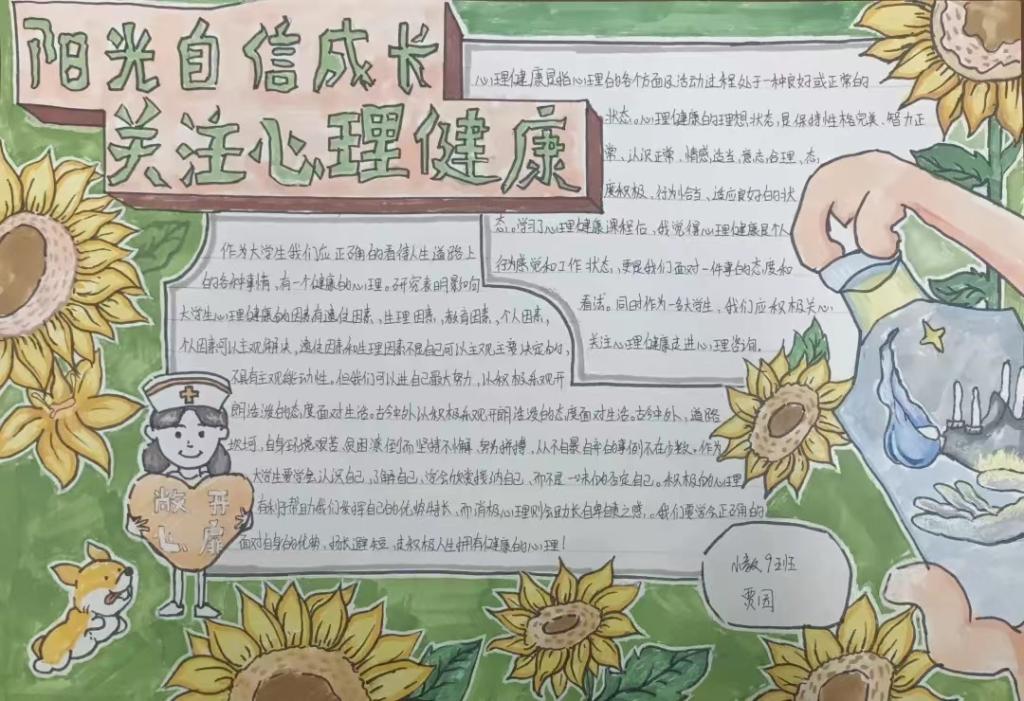 阳光自信成长
关注心理健康
心理健康是指心理的各个方面及活动过程处于一种良好或正常的
状态。心理健康的理想状态,是保持性格完美、智力正
常、认识正常、情感适当、意志合理、态
度积极、行为恰当、适应良好的状
态。学习了心理健康课程后,我觉得心理健康是个人
行为感觉和工作状态,更是我们面对一件事的态度和
看法。同时作为一名大学生,我们应积极关心,
关注心理健康走进心理咨询。
作为大学生我们应正确的看待人生道路上
的各种事情,有一个健康的心理。研究表明影响
大学生心理健康的因素有遗传因素,生理因素,教育因素,个人因素,
个人因素可以主观解决,遗传因素和生理因素不是自己可以主观主要决定的,
不具有主观能动性。但我们可以进自己最大努力,以积极乐观开
朗浩渺的态度面对生活。古今中外以积极乐观开朗浩渺的态度面对生活。古今中外,道路
坎坷,自身环境艰苦,贫困潦倒而坚持不懈,努力拼搏,从不自暴自弃的事例不在少数。作为
大学生要学会认识自己,了解自己,学会欣赏接纳自己,而不是一味的否定自己。积极的心理
有利于帮助我们发挥自己的优势特长,而消极心理则会助长自卑自责之感。我们要学会正确的
面对自身的优势,扬长避短,使积极人生拥有健康的心理!
敞开
心扉
小教9班
贾园